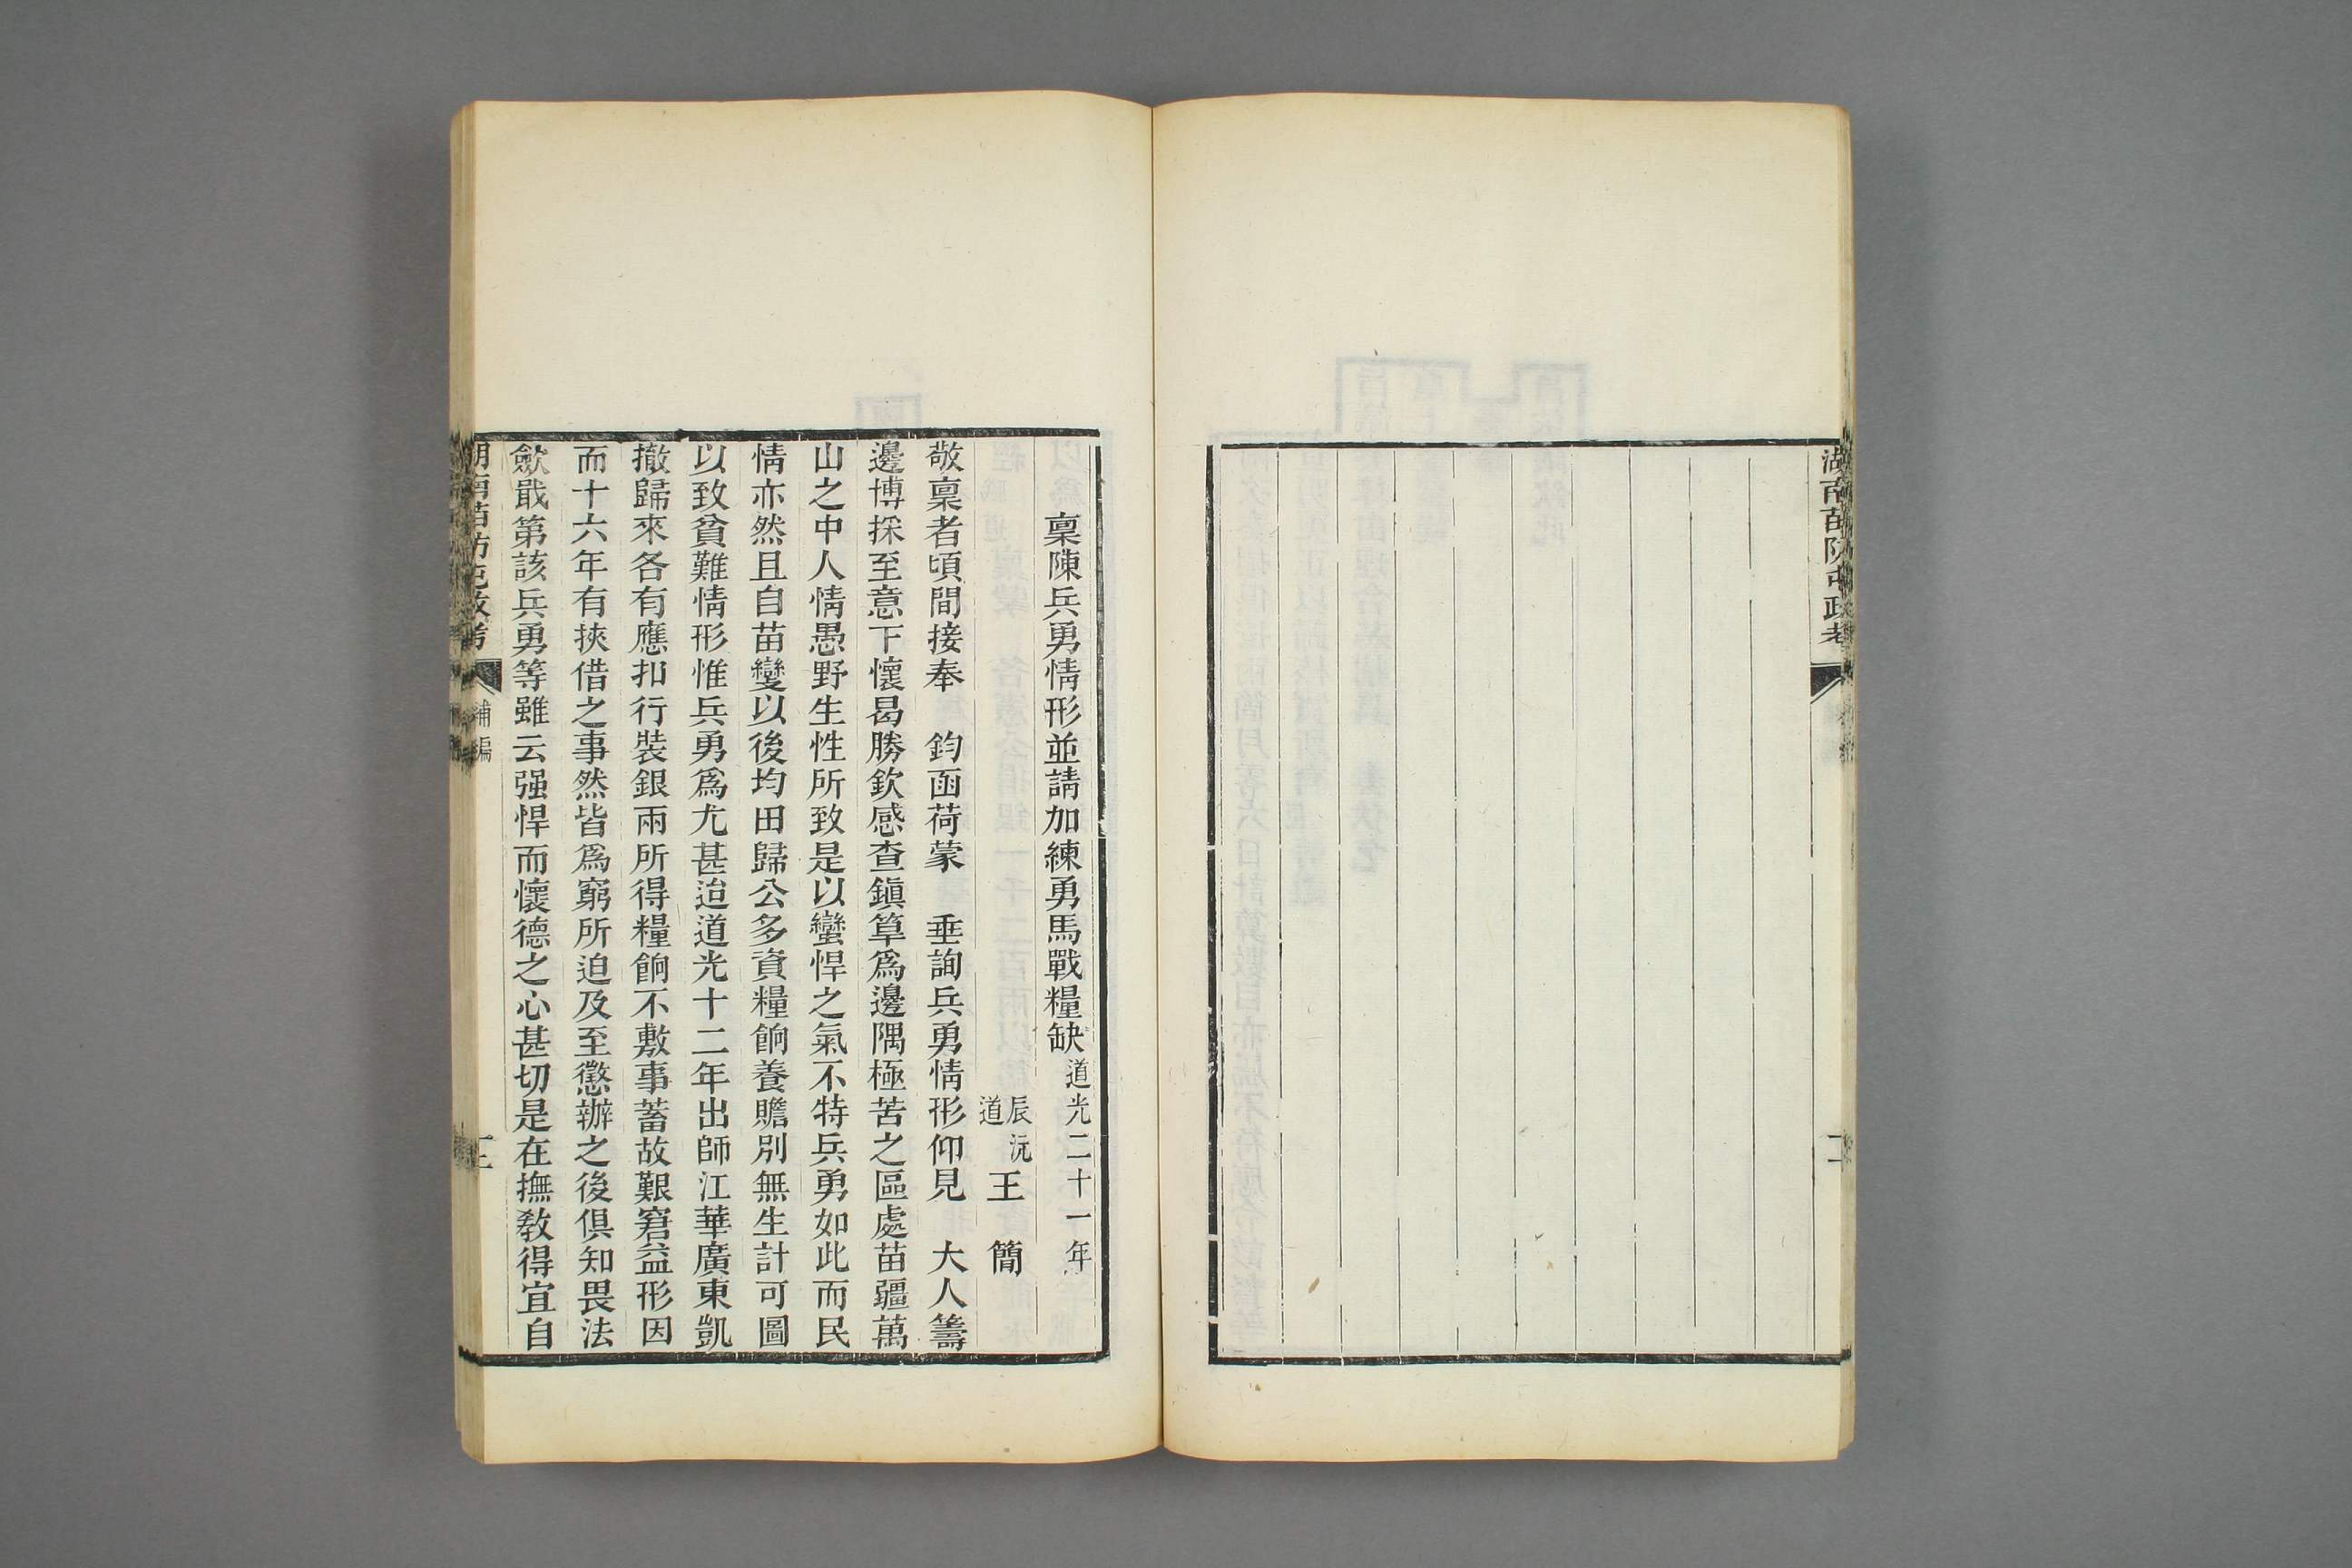 湖南苗防屯政考
二
稟陳兵勇情形並請加練勇馬戰糧缺道光二十一年
辰沅道王簡
敬稟者頃間接奉 鈞函荷蒙 垂詢兵勇情形仰見 大人籌
邊博採至意下懷曷勝欽感查鎮筸爲邊隅極苦之區處苗疆萬
山之中人情愚野生性所致是以蠻悍之氣不特兵勇如此而民
情亦然且自苗變以後均田歸公多資糧餉養贍別無生計可圖
以致貧難情形惟兵勇爲尤甚迨道光十二年出師江華廣東凱
撤歸來各有應扣行裝銀兩所得糧餉不敷事蓄故艱窘益形因
而十六年有挾借之事然皆爲窮所迫及至懲辦之後俱知畏法
歛戢第該兵勇等雖云强悍而懷德之心甚切是在撫敎得宜自
湖南苗防屯政考 補編